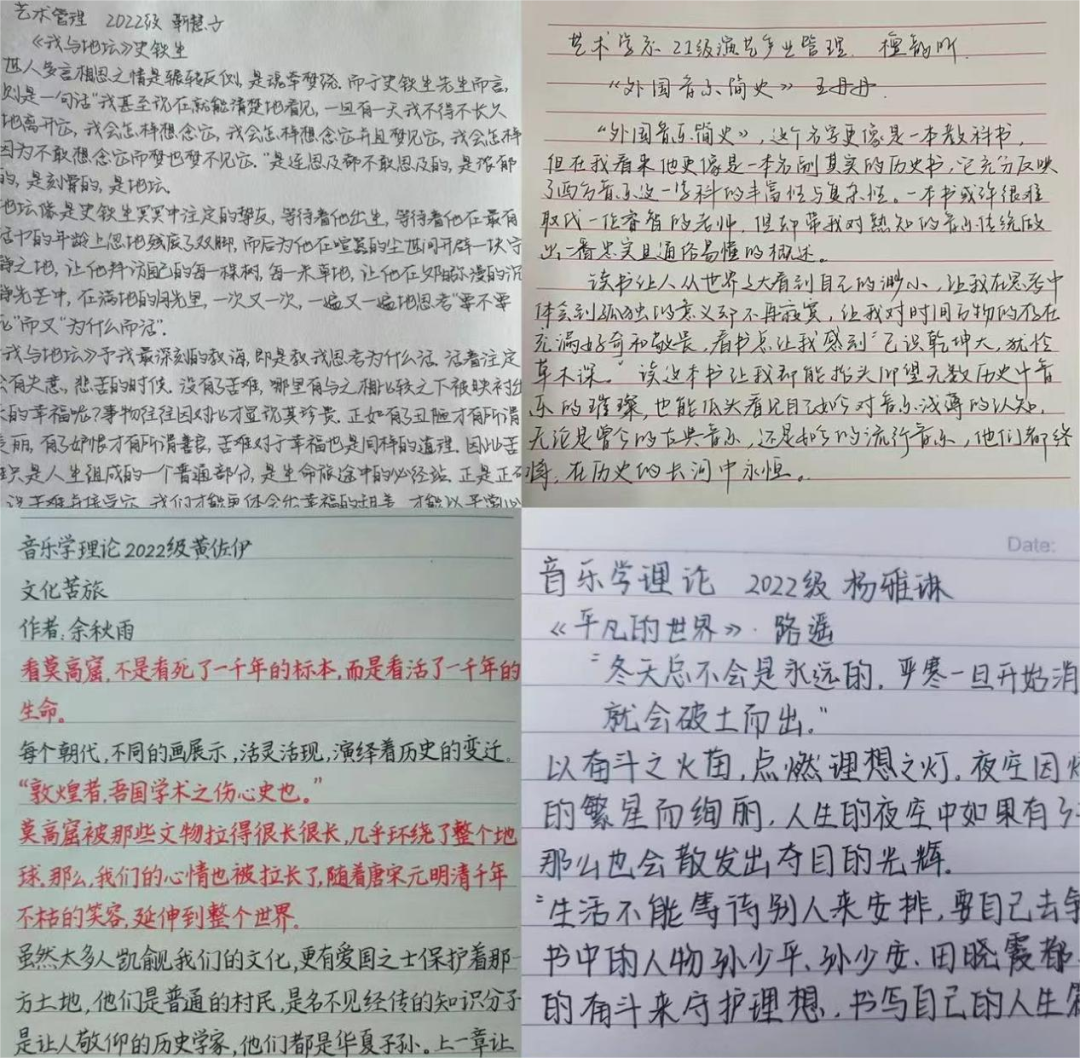 艺术管理 2022级 靳慧方
《我与地坛》史铁生
世人安言相思之情是辗转反侧，是魂牵梦绕。而于史铁生先生而言，
则是一句话"我甚至现在就能清楚地看见，一旦有一天我不得不长久
地离开它，我会怎样想念它，我会怎样想念它并且梦见它，我会怎样
因为不敢想念它而梦也梦不见它。"是连思及都不敢思及的，是浓郁
的，是刻骨的，是地坛。
地坛像是史铁生冥冥中注定的挚友，等待着他出生，等待着他在最有
活力的年龄上忽地残废了双脚，而后为他在喧嚣的尘世间开辟一块宁
静之地，让他拜访自己的每一棵树，每一米草地，让他在
静光芒中，在满地的月光里，一次又一次，一遍又一遍地思考"要不要
"而又"为什么而活"。
我与地坛》予我最深刻的教诲，即是教我思考为什么活。活着注定
会有失意、悲苦的时候，没有了苦难，哪里有与之相比较之下被映衬出
的幸福呢？事物往往因对比才显说其珍贵。正如有了丑陋才有所谓
美丽，有了妒恨才有所谓善良，苦难对于幸福也是同样的道理。因此苦
只是人生组成的一个普通部分，是生命旅途中的必经站，正是正
识苦难并接受它，我们才能更体会出幸福的
艺术学系 21级演艺产业管理 檀韵昕
《外国音乐简史》 王丹丹
《外国音乐简史》，这个名字更像是一本教科书，
但在我看来他更像是一本名副其实的历史书，它充分反映
了西方音乐这一学科的丰富性与复杂性。一本书或许很难
取代一位睿智的老师，但却带我对熟知的音乐传统做
出一番忠实且通俗易懂的概述。
读书让人从世界之大看到自己的渺小，让我在思考中
体会到孤独的意义却不再寂寞，让我对时间万物的存在
充满好奇和敬畏，看书总让我感到"已识乾坤大，犹怜
草木深。"读这本书让我却能抬头仰望无数历史中音
乐的璀璨，也能低头看见自己如今对音乐浅薄的认知，
无论是曾今的古典音乐，还是如今的流行音乐，他们都终
将，在历史的长河中永恒。
音乐学理论2022级黄佐伊
文化苦旅
作者：余秋雨
看莫高窟，不是看死了一千年的标本，而是看活了一千年的
生命。
每个朝代，不同的画展示，活灵活现，演绎着历史的变迁。
"敦煌者，吾国学术之伤心史也。"
莫高窟被那些文物拉得很长很长，几乎环绕了整个地
球。那么，我们的心情也被拉长了，随着唐宋元明清千年
不枯的笑容，延伸到整个世界。
虽然太多人凯觎我们的文化，更有爱国之士保护着那一
方土地，他们是普通的村民，是名不见经传的知识分子
是让人敬仰的历史学家，他们都是华夏子孙。上一章让
Date:
音乐学理论 2022级 杨雅琳
《平凡的世界》·路遥
"冬天总不会是永远的，严寒一旦开始消
就会破土而出。"
以奋斗之火苗，点燃理想之灯。夜空因
的繁星而绚丽，人生的夜空中如果有
那么也会散发出夺目的光辉。
"生活不能等待别人来安排，要自己去争
书中的人物孙少平、孙少安、田晓霞都
的奋斗来守护理想，书写自己的人生篇